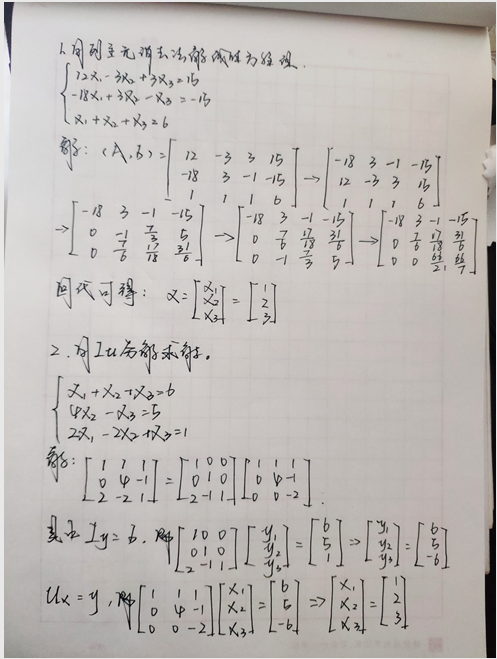 1. 用列主元消去法解线性方程组.
12x₁-3x₂+3x₃=15
-18x₁+3x₂-x₃=-15
x₁+x₂+x₃=6
解: (A,b)=[12 -3 3 15; -18 3 -1 -15; 1 1 1 6]→[-18 3 -1 -15; 12 -3 3 15; 1 1 1 6]
→[-18 3 -1 -15; 0 -1 7/3 5; 0 7/6 17/18 31/6]→[-18 3 -1 -15; 0 7/6 17/18 31/6; 0 -1 7/3 5]→[-18 3 -1 -15; 0 7/6 17/18 31/6; 0 0 66/21 66/7]
回代可得: x=[x₁; x₂; x₃]=[1; 2; 3]
2. 用LU分解求解.
x₁+x₂+x₃=6
4x₂-x₃=5
2x₁-2x₂+x₃=1
解: [1 1 1; 0 4 -1; 2 -2 1]=[1 0 0; 0 1 0; 2 -1 1][1 1 1; 0 4 -1; 0 0 -2].
Ly=b, 即[1 0 0; 0 1 0; 2 -1 1][y₁; y₂; y₃]=[6; 5; 1]⇒[y₁; y₂; y₃]=[6; 5; -6]
Ux=y, 即[1 1 1; 0 4 -1; 0 0 -2][x₁; x₂; x₃]=[6; 5; -6]⇒[x₁; x₂; x₃]=[1; 2; 3]